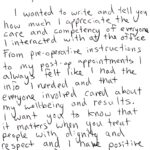 I wanted to write and tell you
how much I appreciate the
care and competency of everyone
I interacted with at the office.
From pre-operative instructions
to my post-op appointments I
always felt like I had the
info I needed and that
everyone involved cared about
my wellbeing and results.
I want you to know that
it matters when you treat
people with dignity and
respect and I have positive